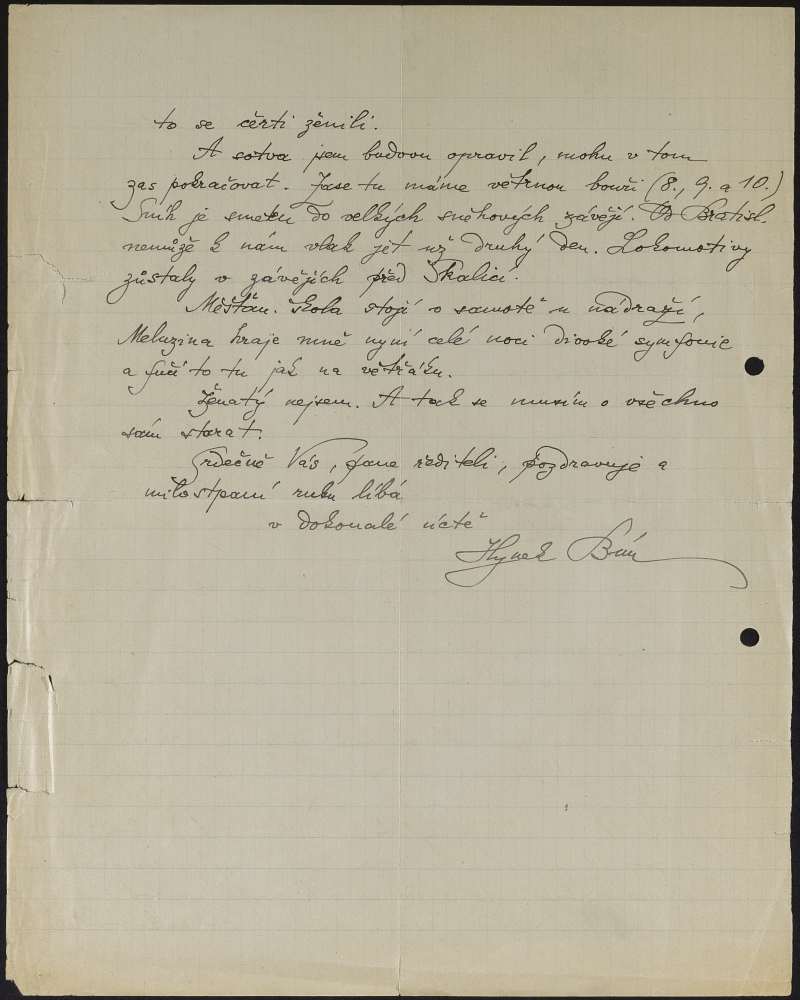 to se čérti ženili.
A sotva jsem budovu opravil, mohu v tom
zas pokračovat. Zase tu máme větrnou bouři (8., 9. a 10.)
Sníh je smeten do velkých sněhových závějí. Od Bratisl.
nemůže k nám vlak jet už druhý den. Lokomotivy
zůstaly v závějích před Skalicí.
Měšťan. škola stojí o samotě u nádraží,
Meluzina hraje mně nyní celé noci divoké symfonie
a fučí to tu jak na větřáku.
Ženatý nejsem. A tak se musím o všechno
sám starat.
Srdečně Vás, pane řediteli, pozdravuje a
milostpaní ruku líbá
v dokonalé úctě
Hynek Bím